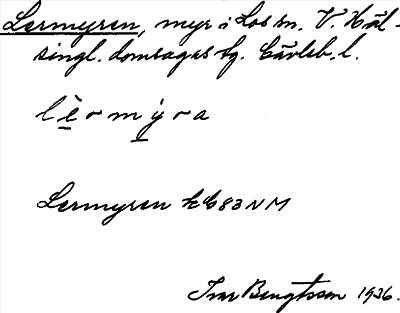 Lermyren, myr i Los sn. V. Häl-
singl. domsagas tg. Gävleb. l.
lèrmýra
Lermyren k bl 83 NM
Ivar Bengtsson 1936.